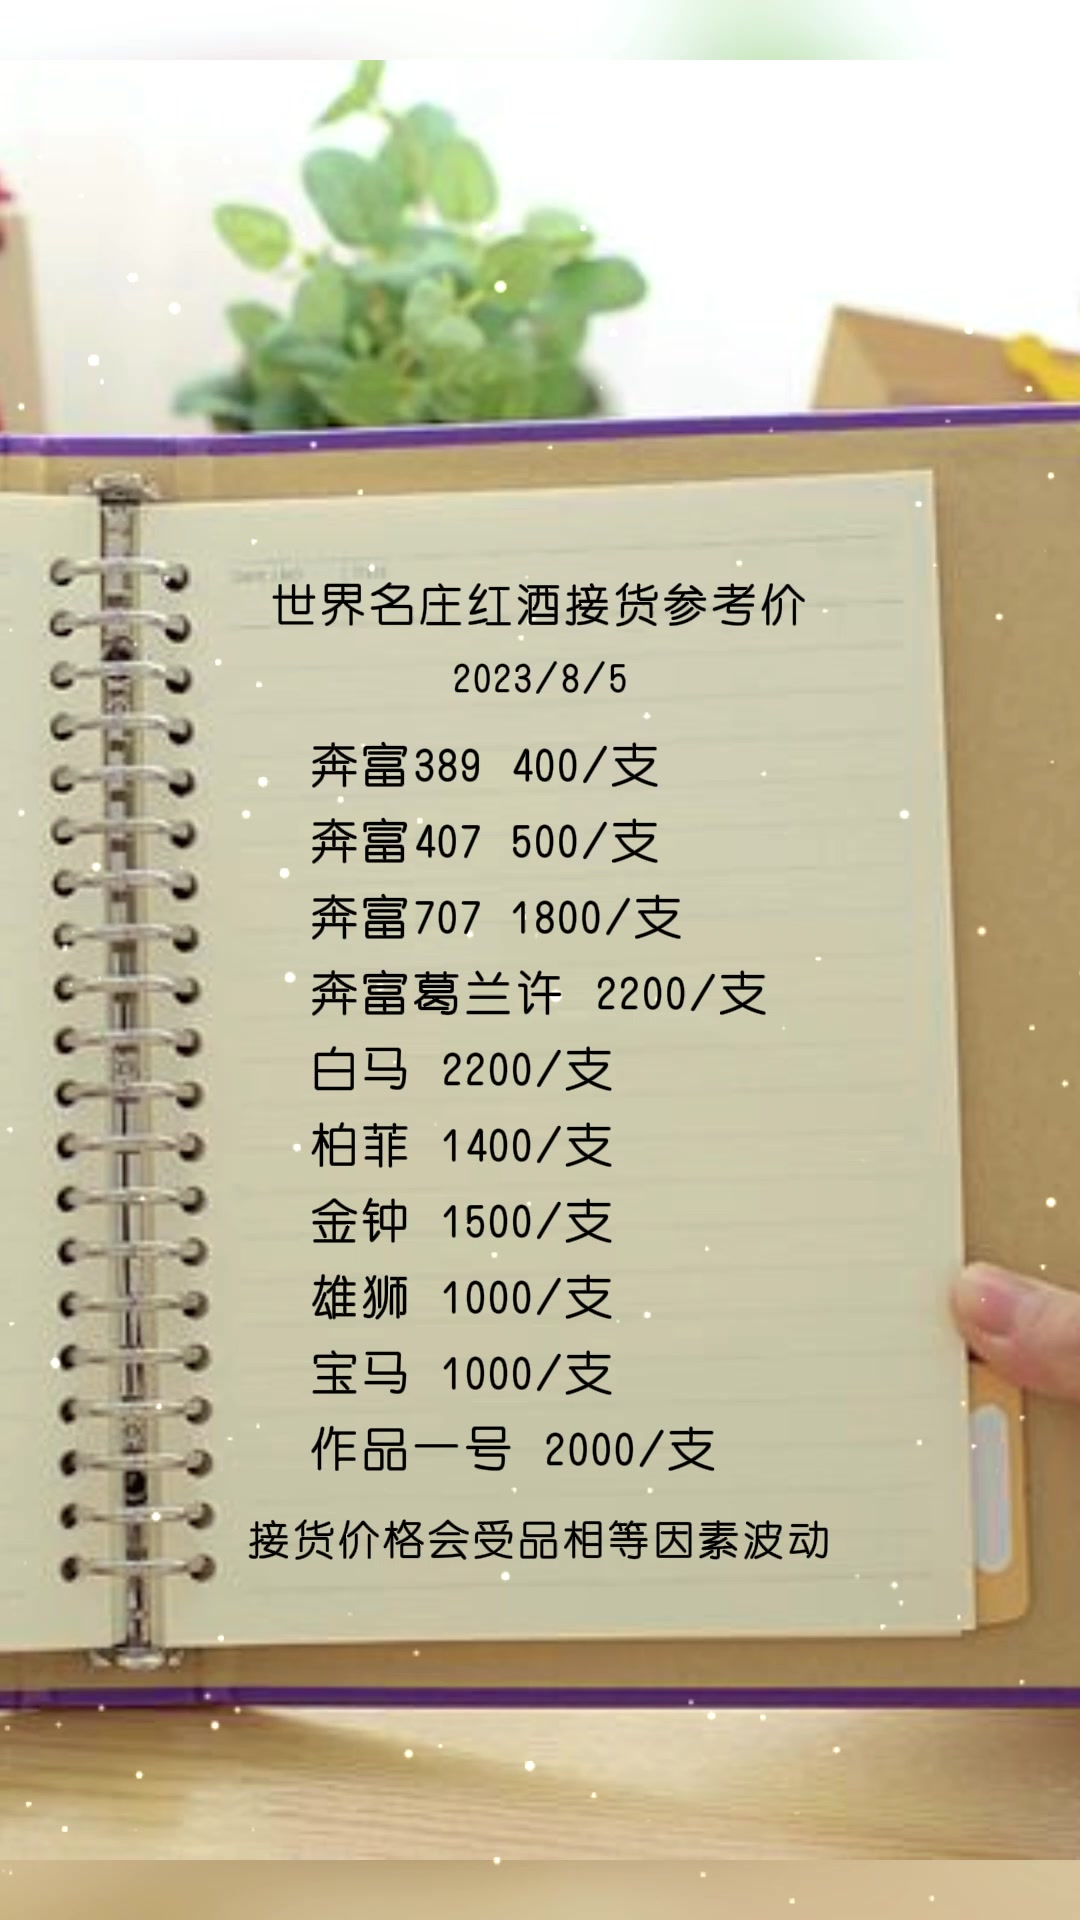 世界名庄红酒接货参考价
2023/8/5
奔富389 400/支
奔富407 500/支
奔富707 1800/支
奔富葛兰许 2200/支
白马 2200/支
柏菲 1400/支
金钟 1500/支
雄狮 1000/支
宝马 1000/支
作品一号 2000/支
接货价格会受品相等因素波动